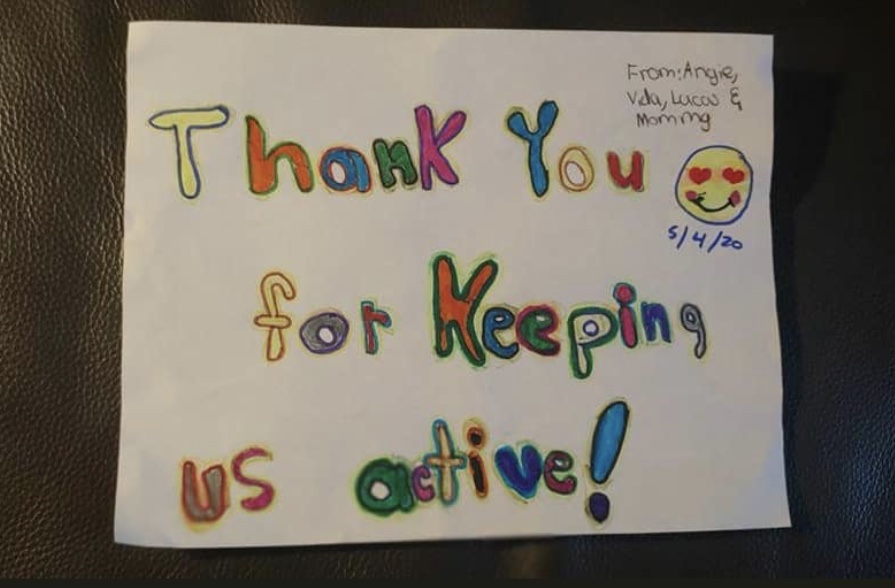 From: Angie,
Vida, Lucas &
Mommy
Thank You
5/4/20
for Keeping
us active!